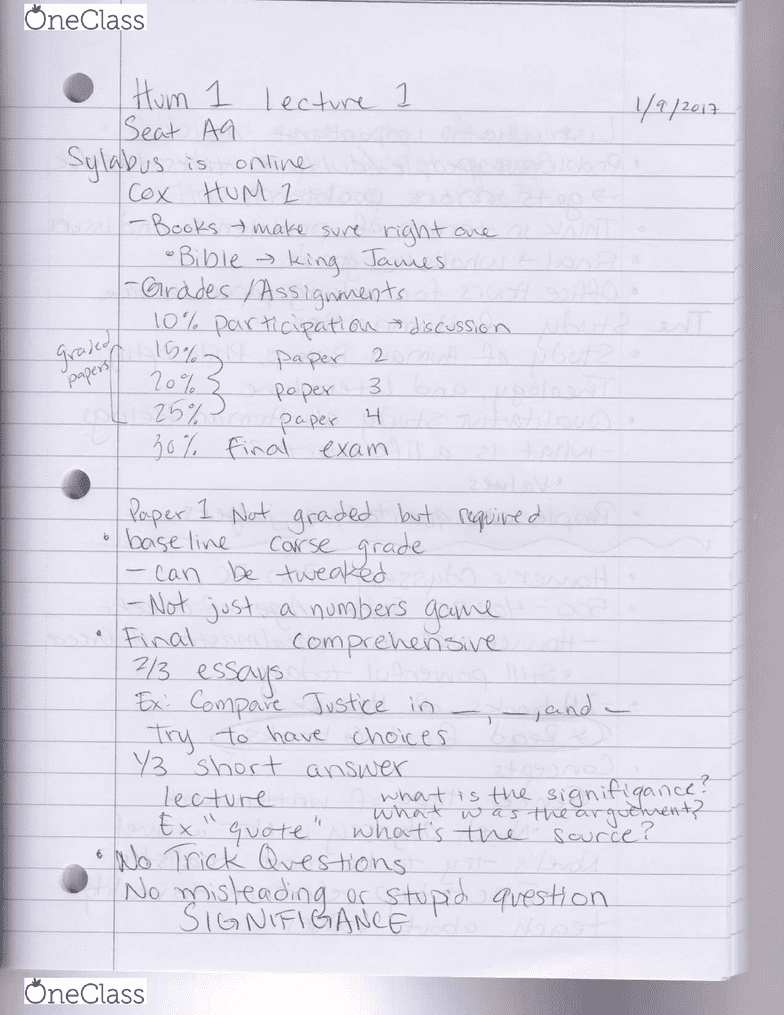 OneClass
Hum 1 lecture 1
1/9/2017
Seat A9
Sylabus is online
Cox HUM 1
- Books → make sure right one
• Bible → king James
- Grades / Assignments
10% participation → discussion
graded papers
15% paper 2
20% paper 3
25% paper 4
30% Final exam
Paper 1 Not graded but required
• baseline corse grade
- can be tweaked
- Not just a numbers game
• Final comprehensive
2/3 essays
Ex: Compare Justice in —, —, and —
Try to have choices
1/3 short answer
lecture what is the signifigance?
what was the arguement?
Ex "quote" what's the source?
• No Trick Questions
No misleading or stupid question
SIGNIFIGANCE
OneClass